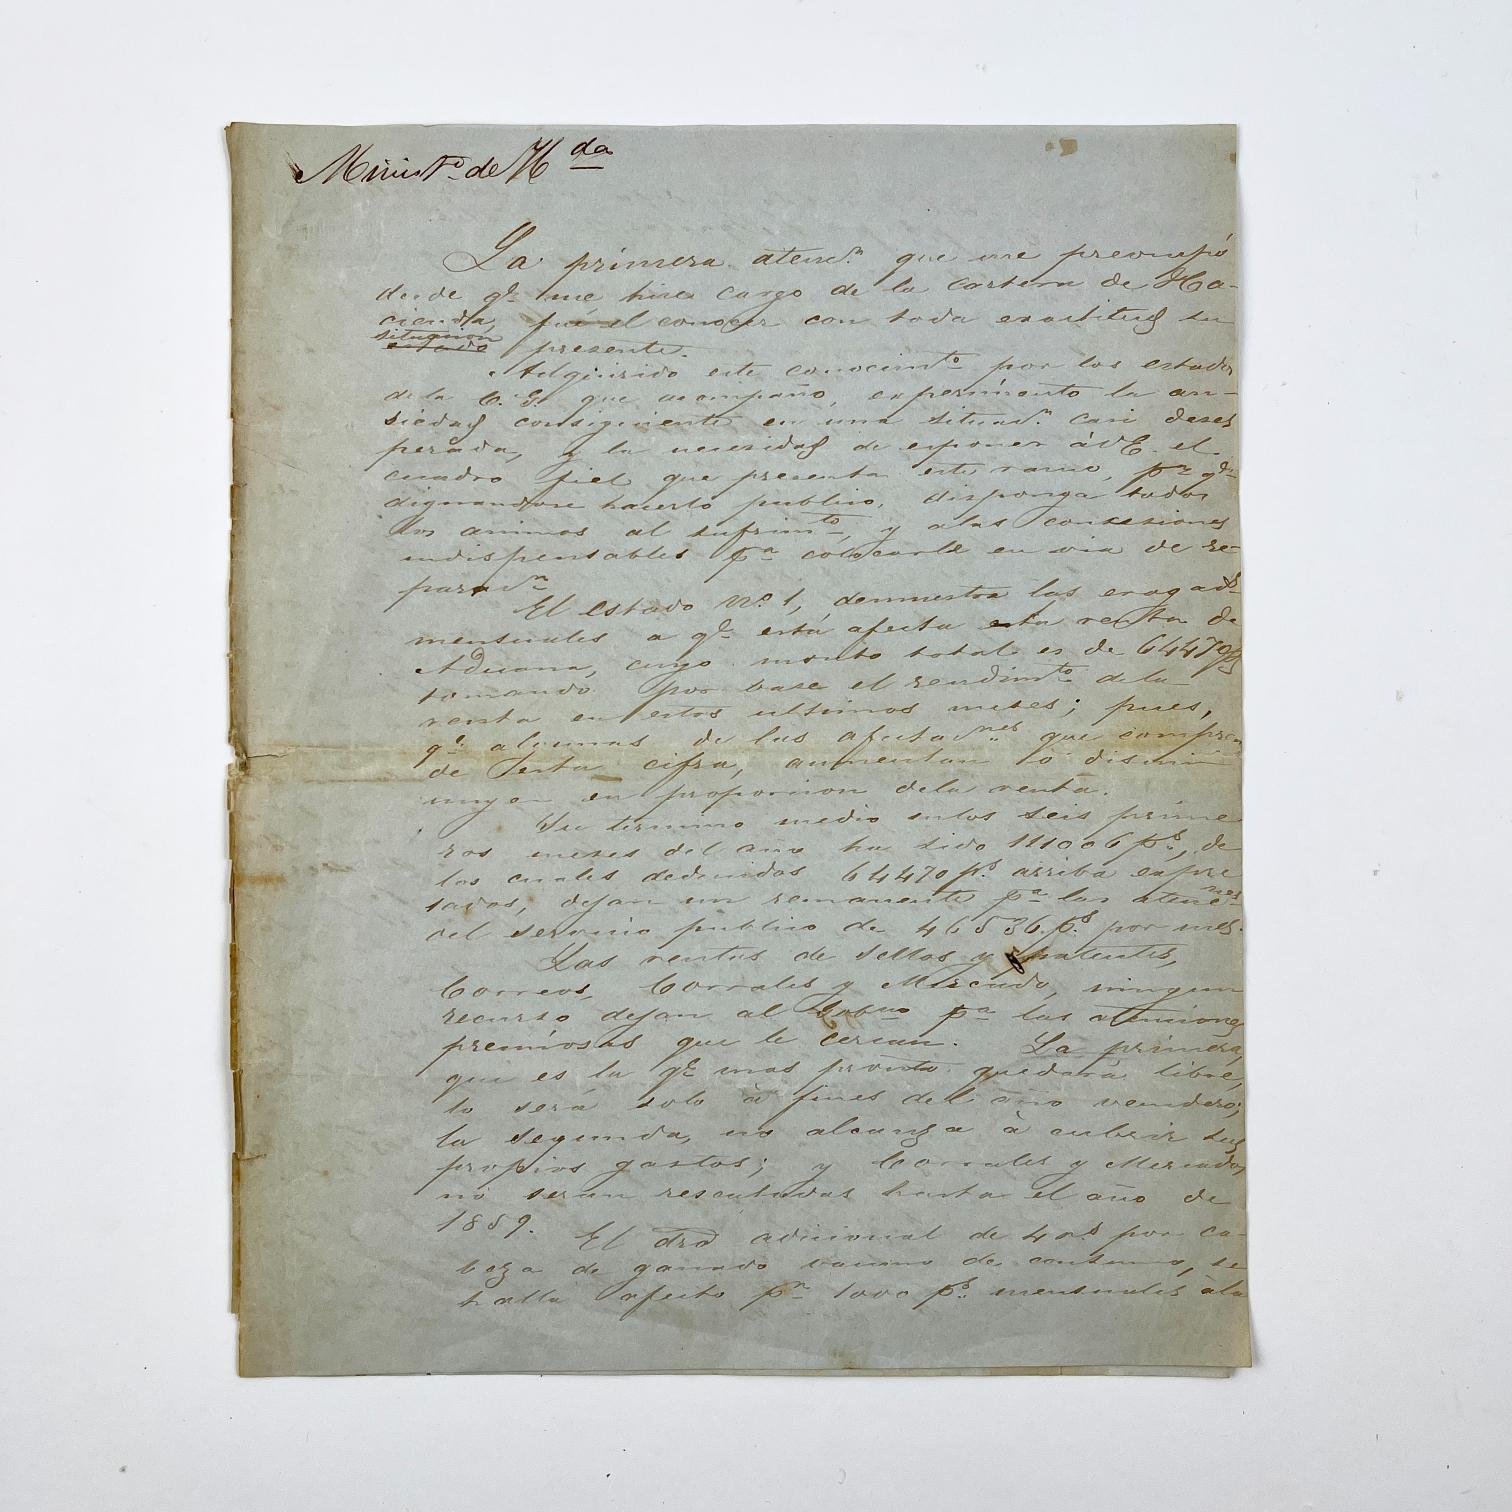 Minist.º de H.da
La primera atenc.n que me preocupó
desde q.e me hice cargo de la cartera de Ha-
cienda, fué el conocer con toda exactitud su
situacion
estado presente.
Adquirido este conocim.to por los estados
de la C. G. que acompaño, experimento la an-
siedad consiguiente en una situac.n casi deses
perada, y la necesidad de esponer á V.E. el
cuadro fiel que presenta este ramo, p.a q.e
dignandose hacerlo publico, disponga todos
los animos al sufrim.to, y a las concesiones
indispensables p.a colocarle en via de re-
parac.n
El estado N.º 1, demuestra las erogac.s
mensuales a q.e está afecta esta renta de
Aduana, cuyo monto total es de 64470 p.s
tomando por base el rendim.to de la
renta en estos ultimos meses; pues,
q.e algunas de las afectac.nes que compren
de esta cifra, aumentan ó dismi
nuyen en proporcion dela renta.
Su termino medio enlos seis prime
ros meses del año ha sido 111006 p.s, de
los cuales deducidos 64470 p.s arriba expre
sados, dejan un remanente p.a las atenc.nes
del servicio publico de 46536 p.s por mes.
Las rentas de sellos y patentes,
Correos, Corrales y Mercado, ningun
recurso dejan al Gob.no p.a las atenciones
premiosas que le cercan. La primera,
que es la q.e mas pronto quedará libre,
lo será solo à fines del año venidero;
la segunda, no alcanza à cubrir sus
propios gastos; y Corrales y Mercado,
no seran rescatadas hasta el año de
1859. El dró adicional de 4 r.s por ca-
beza de ganado vacuno de consumo, se
halla afecto p.r 1000 p.s mensuales à la